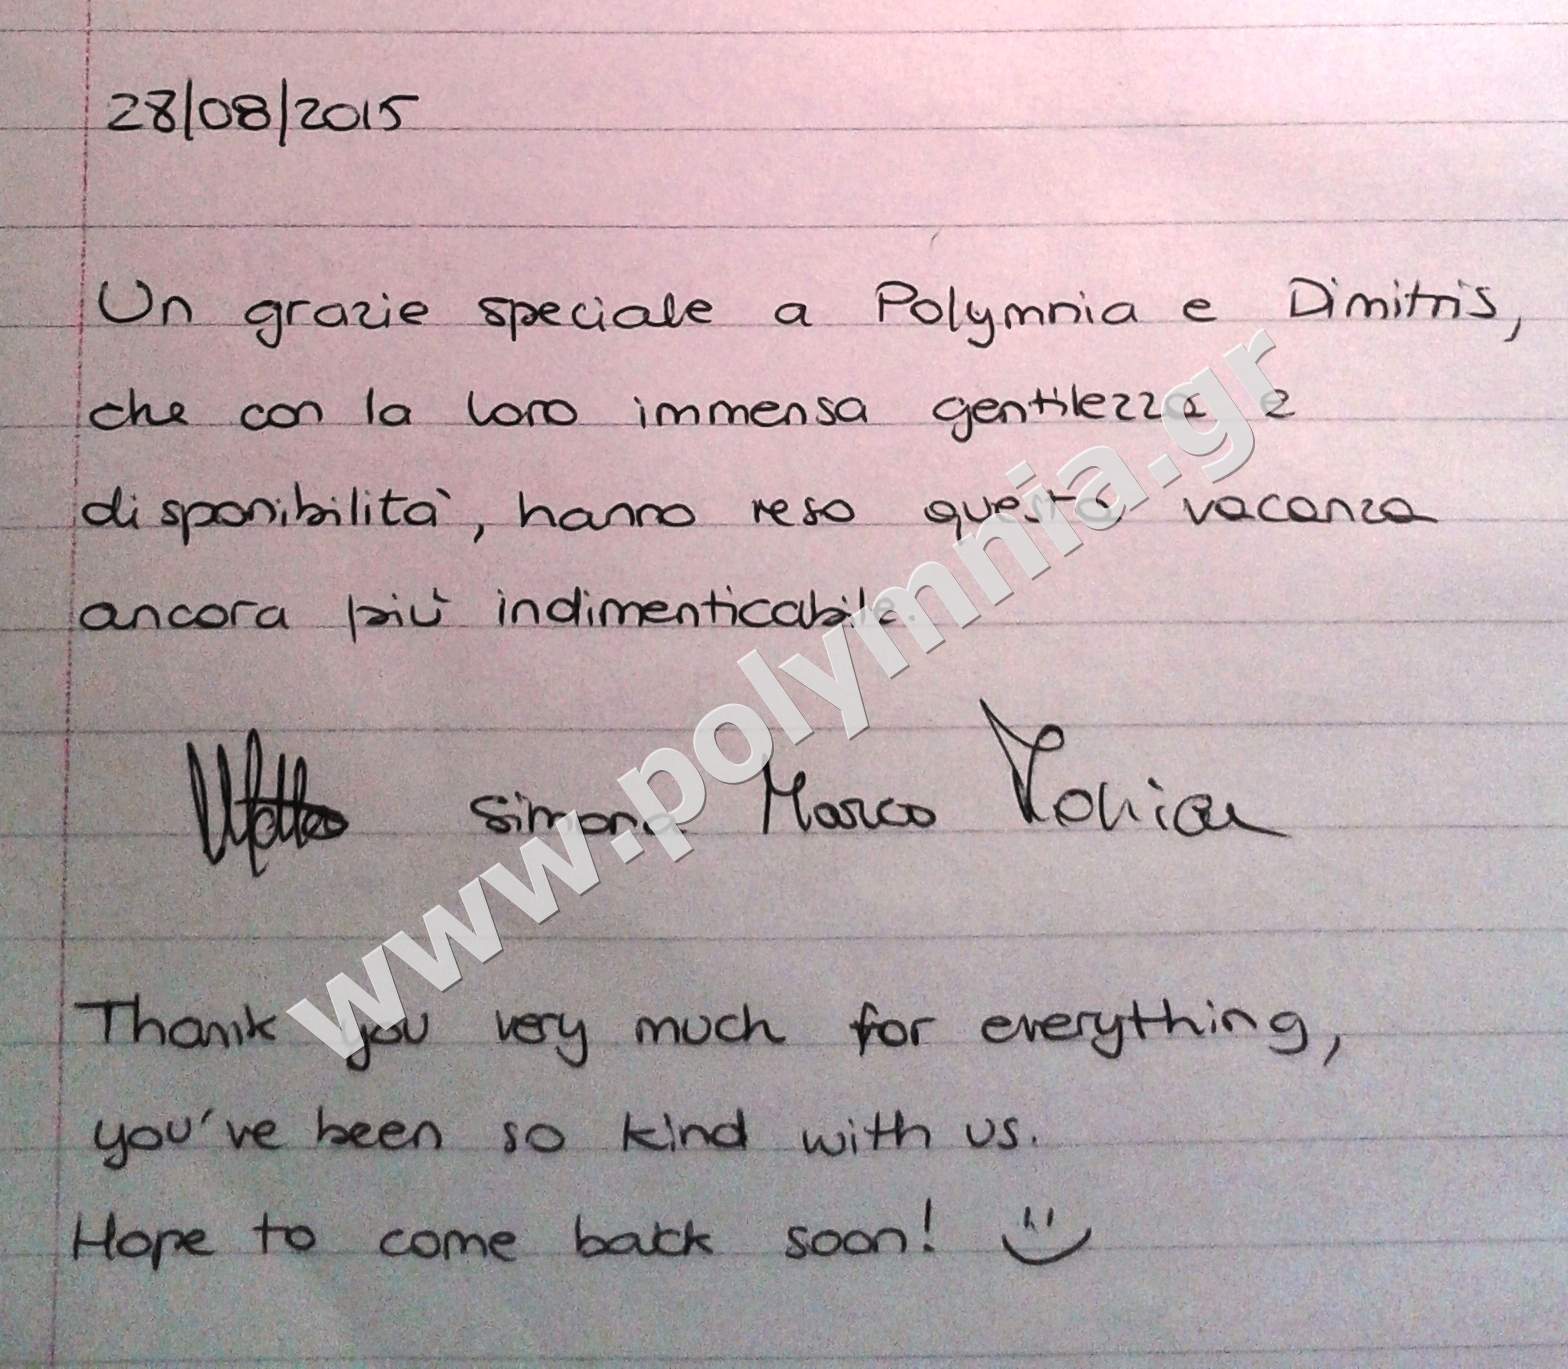 28/08/2015
Un grazie speciale a Polymnia e Dimitris,
che con la loro immensa gentilezza e
disponibilità, hanno reso questa vacanza
ancora più indimenticabile.
Matteo Simona Marco
Thank you very much for everything,
you've been so kind with us.
Hope to come back soon!
www.polymnia.gr